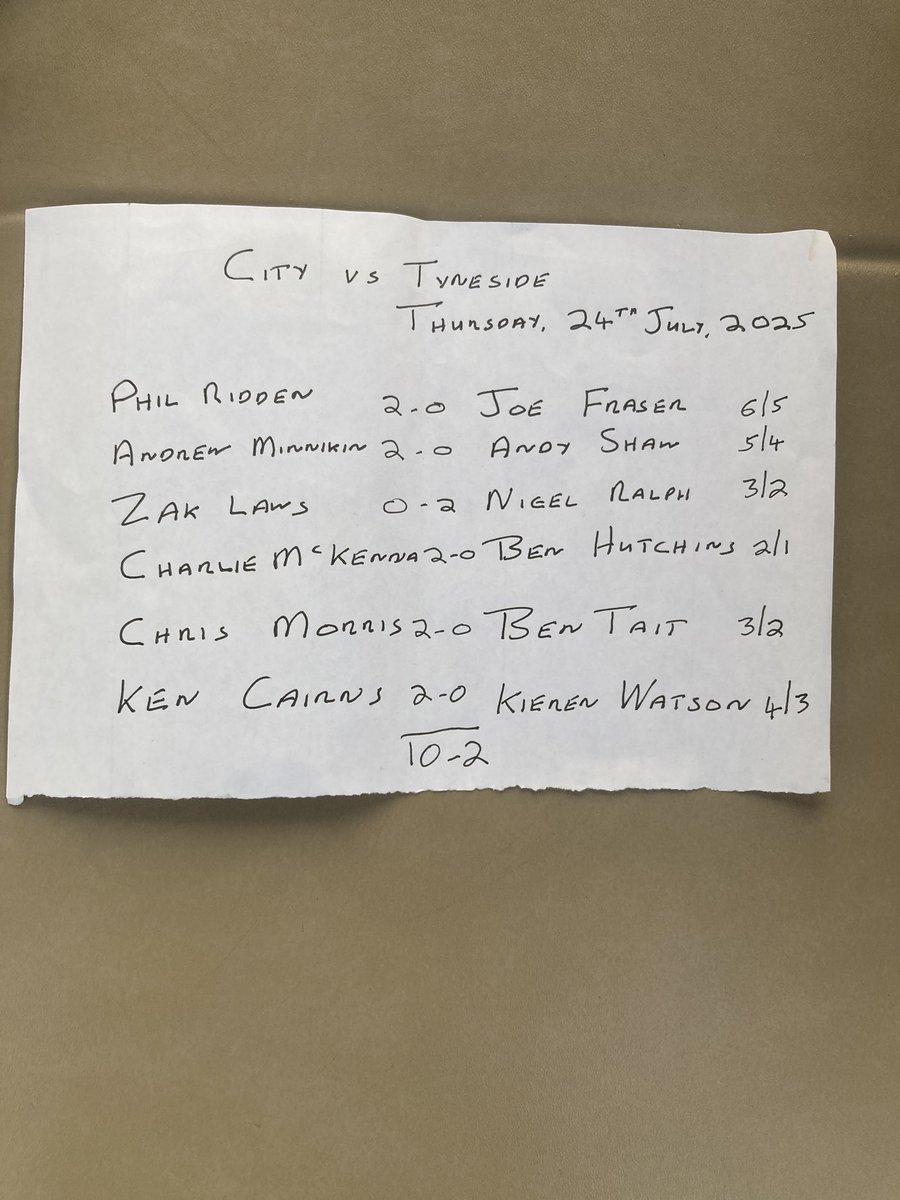 CITY VS TYNESIDE
THURSDAY, 24TH JULY, 2025
PHIL RIDDEN 2-0 JOE FRASER 6/5
ANDREW MINNIKIN 2-0 ANDY SHAW 5/4
ZAK LAWS 0-2 NIGEL RALPH 3/2
CHARLIE McKENNA 2-0 BEN HUTCHINS 2/1
CHRIS MORRIS 2-0 BEN TAIT 3/2
KEN CAIRNS 2-0 KIEREN WATSON 4/3
10-2